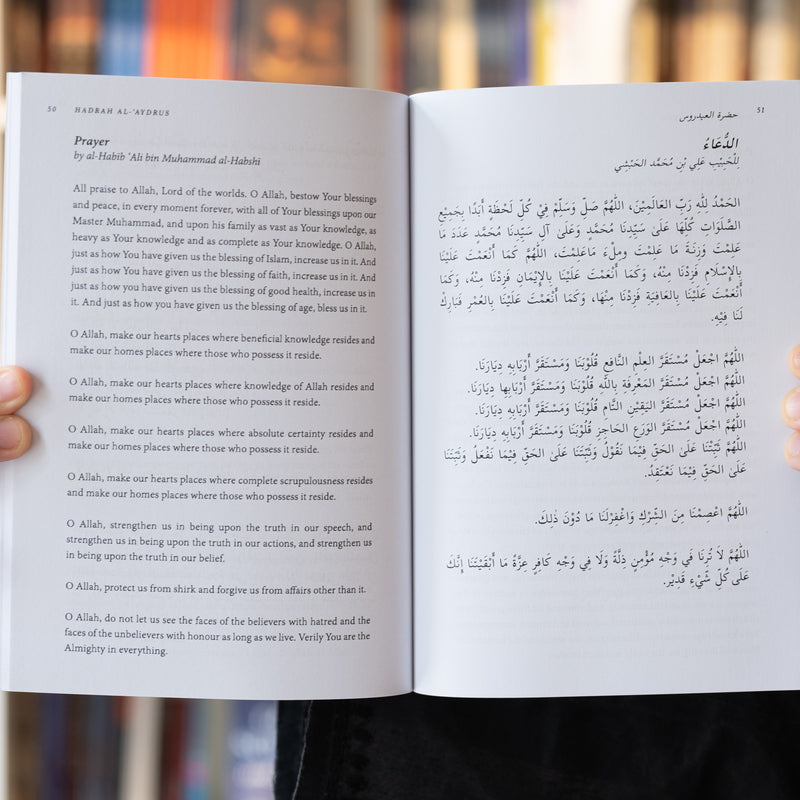 50 HADRAH AL-'AYDRUS
Prayer
by al-Habib 'Ali bin Muhammad al-Habshi
All praise to Allah, Lord of the worlds. O Allah, bestow Your blessings
and peace, in every moment forever, with all of Your blessings upon our
Master Muhammad, and upon his family as vast as Your knowledge, as
heavy as Your knowledge and as complete as Your knowledge. O Allah,
just as how You have given us the blessing of Islam, increase us in it. And
just as how You have given us the blessing of faith, increase us in it. And
just as how You have given us the blessing of good health, increase us in
it. And just as how you have given us the blessing of age, bless us in it.
O Allah, make our hearts places where beneficial knowledge resides and
make our homes places where those who possess it reside.
O Allah, make our hearts places where knowledge of Allah resides and
make our homes places where those who possess it reside.
O Allah, make our hearts places where absolute certainty resides and
make our homes places where those who possess it reside.
O Allah, make our hearts places where complete scrupulousness resides
and make our homes places where those who possess it reside.
O Allah, strengthen us in being upon the truth in our speech, and
strengthen us in being upon the truth in our actions, and strengthen us
in being upon the truth in our belief.
O Allah, protect us from shirk and forgive us from affairs other than it.
O Allah, do not let us see the faces of the believers with hatred and the
faces of the unbelievers with honour as long as we live. Verily You are the
Almighty in everything.
حضرة العيدروس 51
الدُّعَاءُ
لِلْحَبِيْبِ عَلِي بْنِ مُحَمَّد الحَبْشِي
الحَمْدُ لِلّٰهِ رَبِّ العَالَمِيْنَ، اللّٰهُمَّ صَلِّ وَسَلِّمْ فِيْ كُلِّ لَحْظَةٍ أَبَدًا بِجَمِيْعِ
الصَّلَوَاتِ كُلِّهَا عَلَىٰ سَيِّدِنَا مُحَمَّدٍ وَعَلَىٰ آلِ سَيِّدِنَا مُحَمَّدٍ عَدَدَ مَا
عَلِمْتَ وَزِنَةَ مَا عَلِمْتَ وَمِلْءَ مَاعَلِمْتَ، اللّٰهُمَّ كَمَا أَنْعَمْتَ عَلَيْنَا
بِالإِسْلَامِ فَزِدْنَا مِنْهُ، وَكَمَا أَنْعَمْتَ عَلَيْنَا بِالإِيْمَانِ فَزِدْنَا مِنْهُ، وَكَمَا
أَنْعَمْتَ عَلَيْنَا بِالعَافِيَةِ فَزِدْنَا مِنْهَا، وَكَمَا أَنْعَمْتَ عَلَيْنَا بِالعُمْرِ فَبَارِكْ
لَنَا فِيْهِ.
اللّٰهُمَّ اجْعَلْ مُسْتَقَرَّ العِلْمِ النَّافِعِ قُلُوْبَنَا وَمُسْتَقَرَّ أَرْبَابِهِ دِيَارَنَا.
اللّٰهُمَّ اجْعَلْ مُسْتَقَرَّ المَعْرِفَةِ بِاللّٰهِ قُلُوْبَنَا وَمُسْتَقَرَّ أَرْبَابِهَا دِيَارَنَا.
اللّٰهُمَّ اجْعَلْ مُسْتَقَرَّ اليَقِيْنِ التَّامِ قُلُوْبَنَا وَمُسْتَقَرَّ أَرْبَابِهِ دِيَارَنَا.
اللّٰهُمَّ اجْعَلْ مُسْتَقَرَّ الوَرَعِ الحَاجِزِ قُلُوْبَنَا وَمُسْتَقَرَّ أَرْبَابِهِ دِيَارَنَا.
اللّٰهُمَّ ثَبِّتْنَا عَلَىٰ الحَقِّ فِيْمَا نَقُوْلُ وَثَبِّتْنَا عَلَىٰ الحَقِّ فِيْمَا نَفْعَلُ وَثَبِّتْنَا
عَلَىٰ الحَقِّ فِيْمَا نَعْتَقِدُ.
اللّٰهُمَّ اعْصِمْنَا مِنَ الشِّرْكِ وَاغْفِرْلَنَا مَا دُوْنَ ذٰلِكَ.
اللّٰهُمَّ لَا تُرِنَا فِي وَجْهِ مُؤْمِنٍ ذِلَّةً وَلَا فِي وَجْهِ كَافِرٍ عِزَّةً مَا أَبْقَيْتَنَا إِنَّكَ
عَلَى كُلِّ شَيْءٍ قَدِيْر.